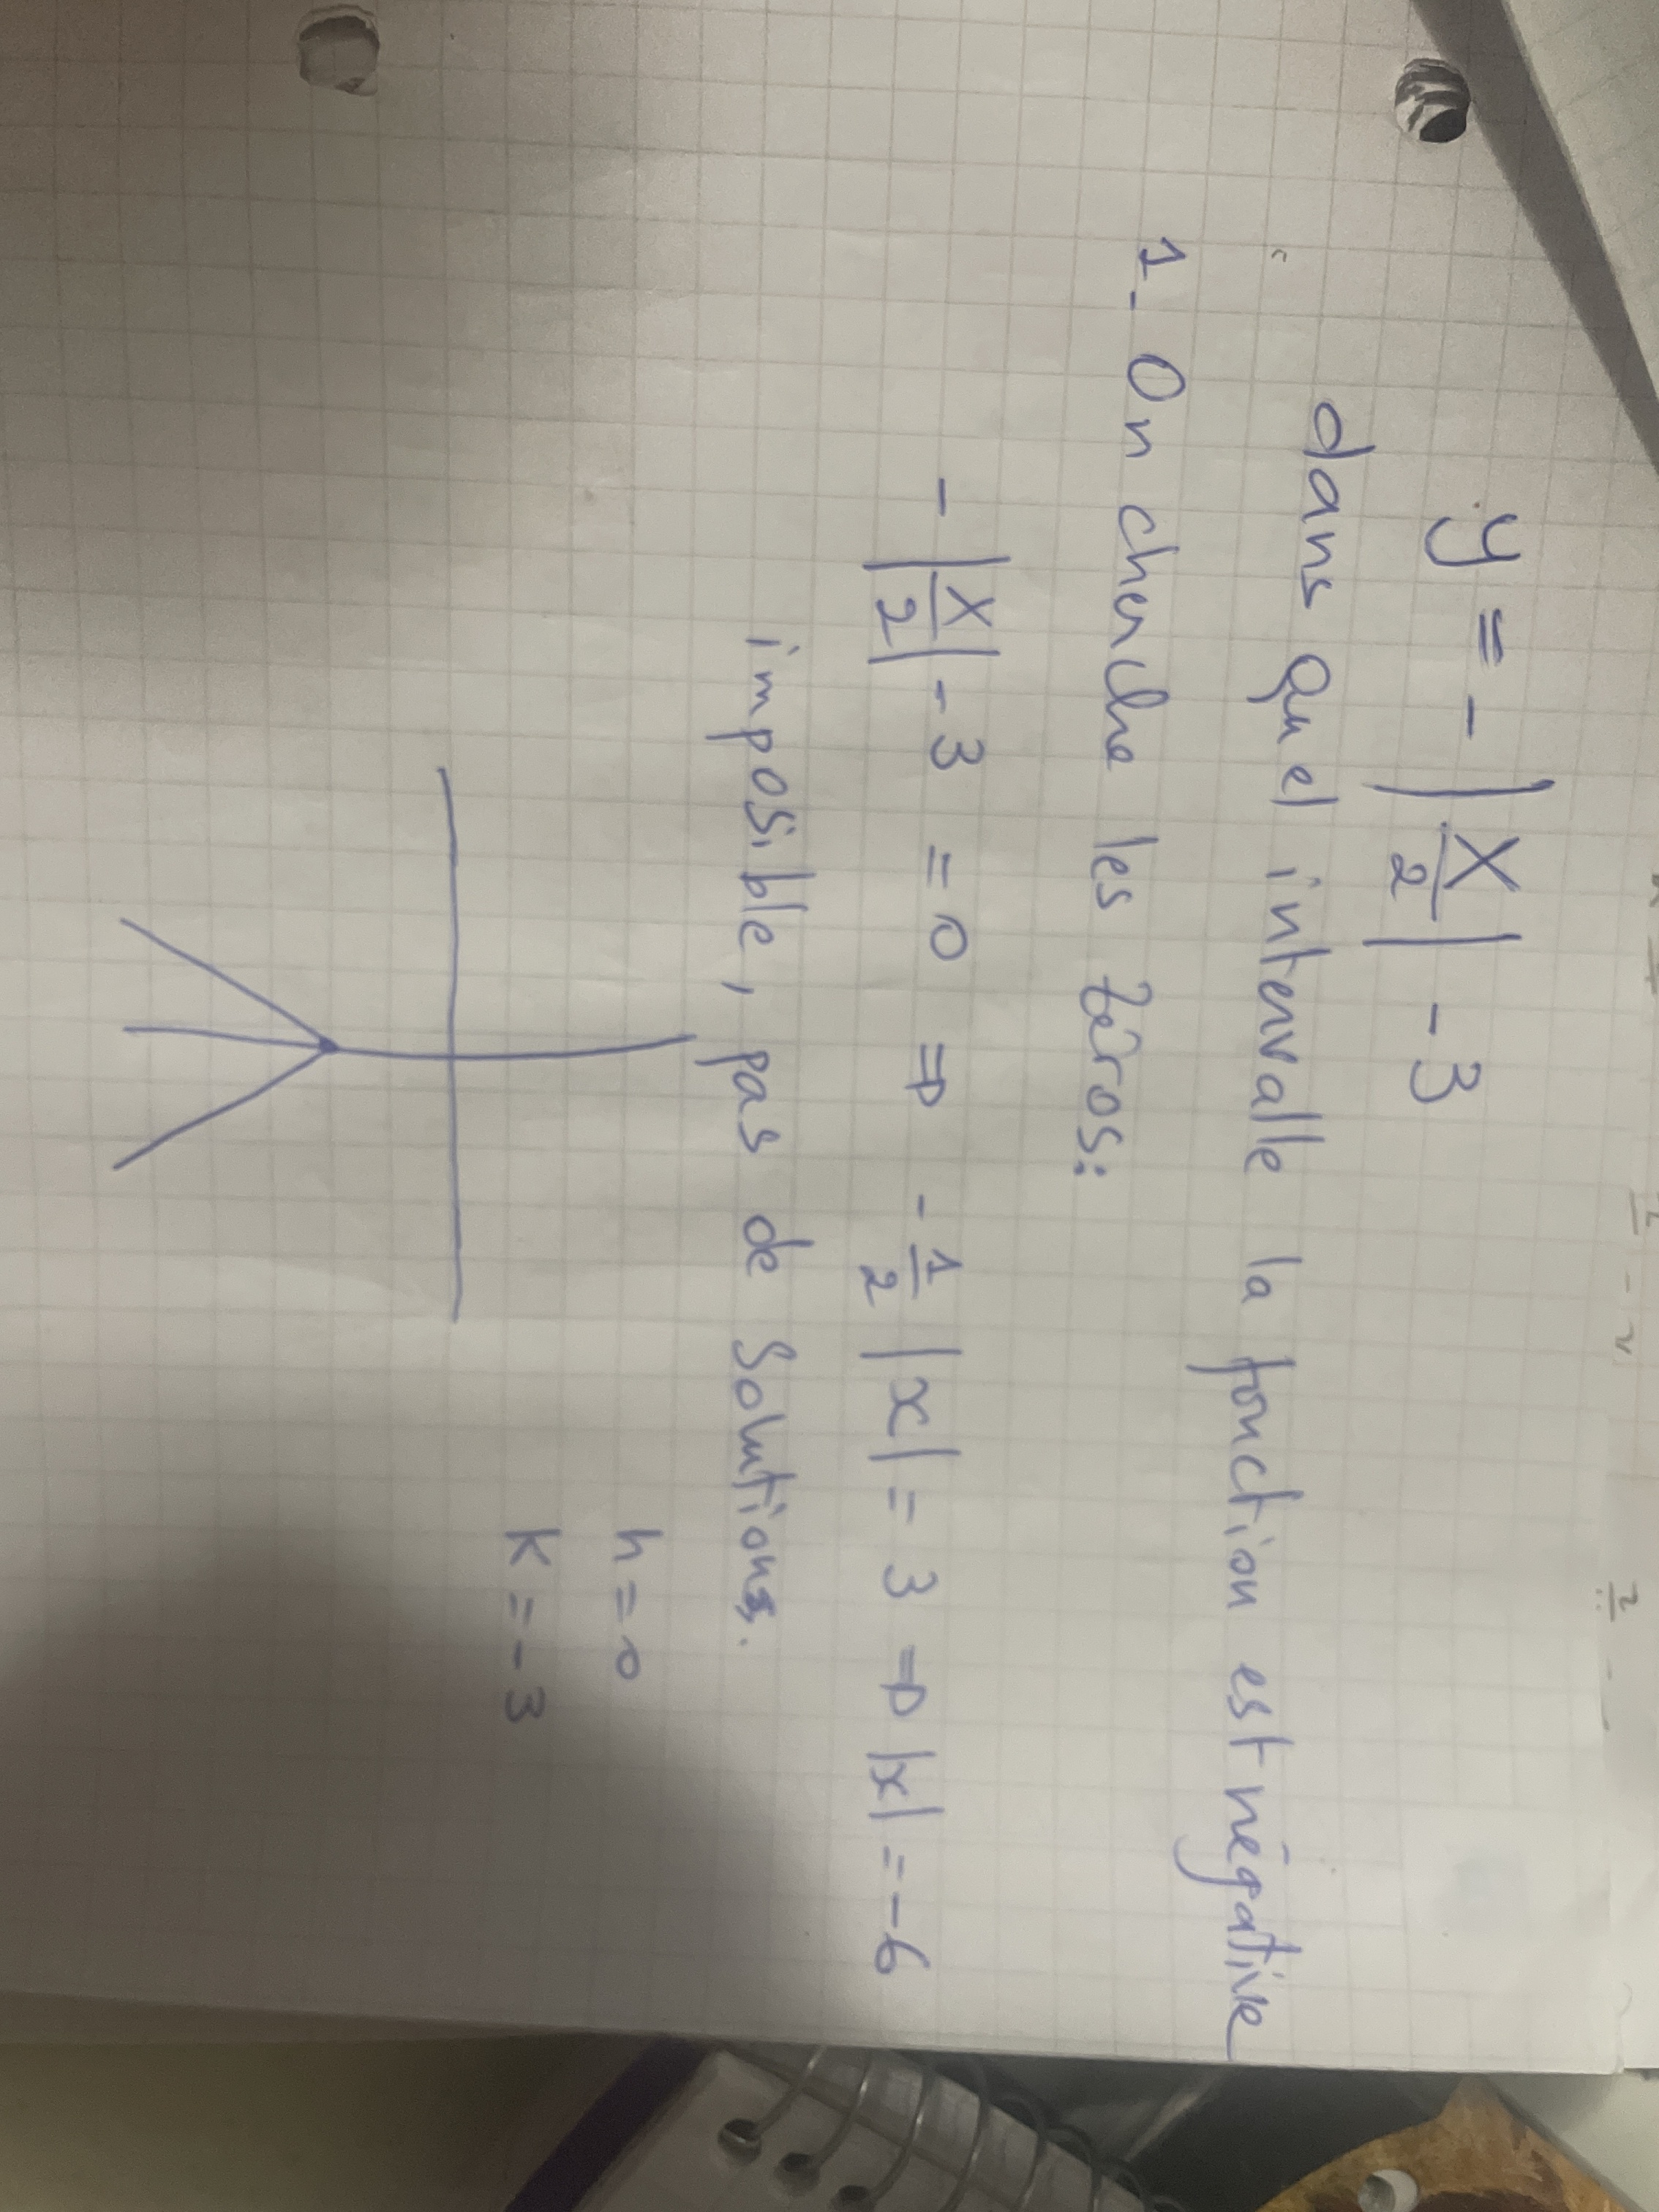 y = - |x/2| - 3
dans quel intervalle la fonction est négative
1- On cherche les zéros:
- |x/2| - 3 = 0 ⇒ - 1/2 |x| = 3 ⇒ |x| = -6
imposible, pas de Solutions.
h = 0
K = -3